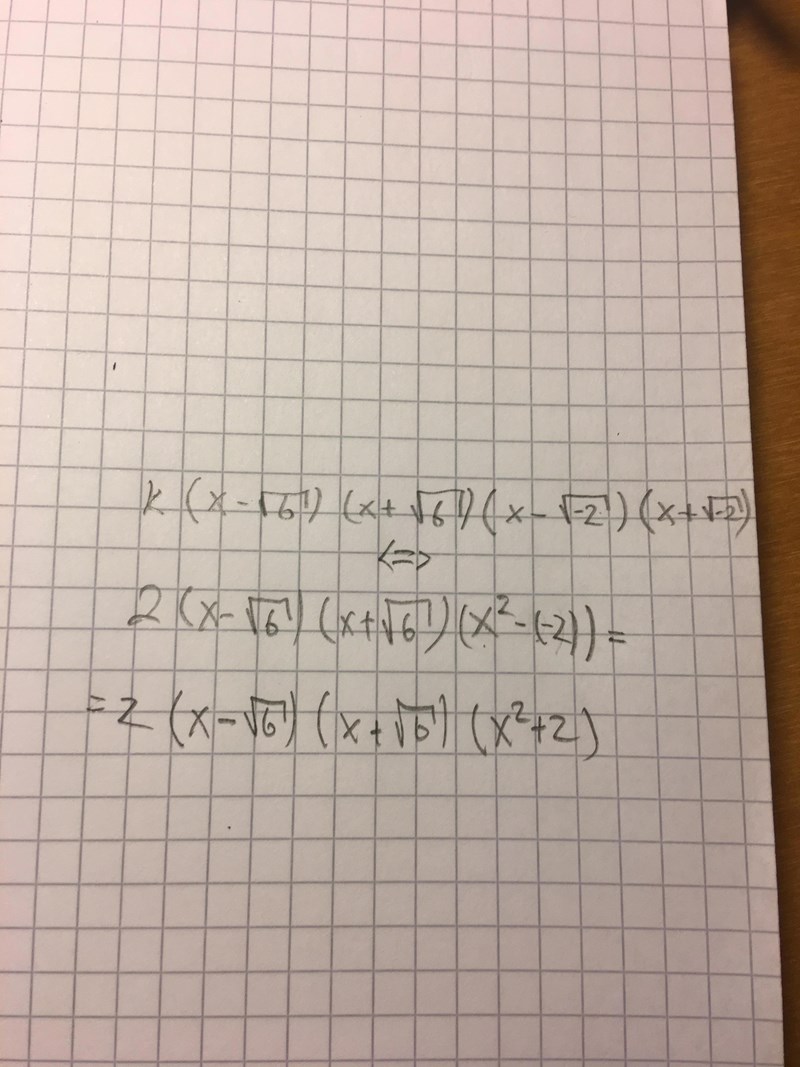 k (x-√6) (x+√6) (x-√-2) (x+√-2)
<=>
2 (x-√6) (x+√6) (x²-(-2)) =
= 2 (x-√6) (x+√6) (x²+2)